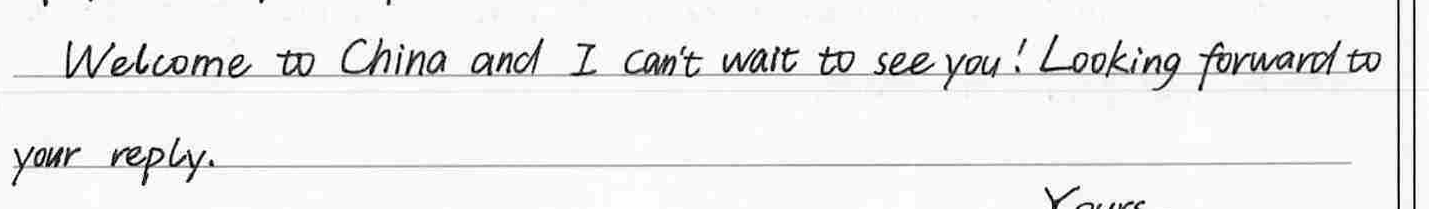 Welcome to China and I can't wait to see you! Looking forward to
your reply.
Yours